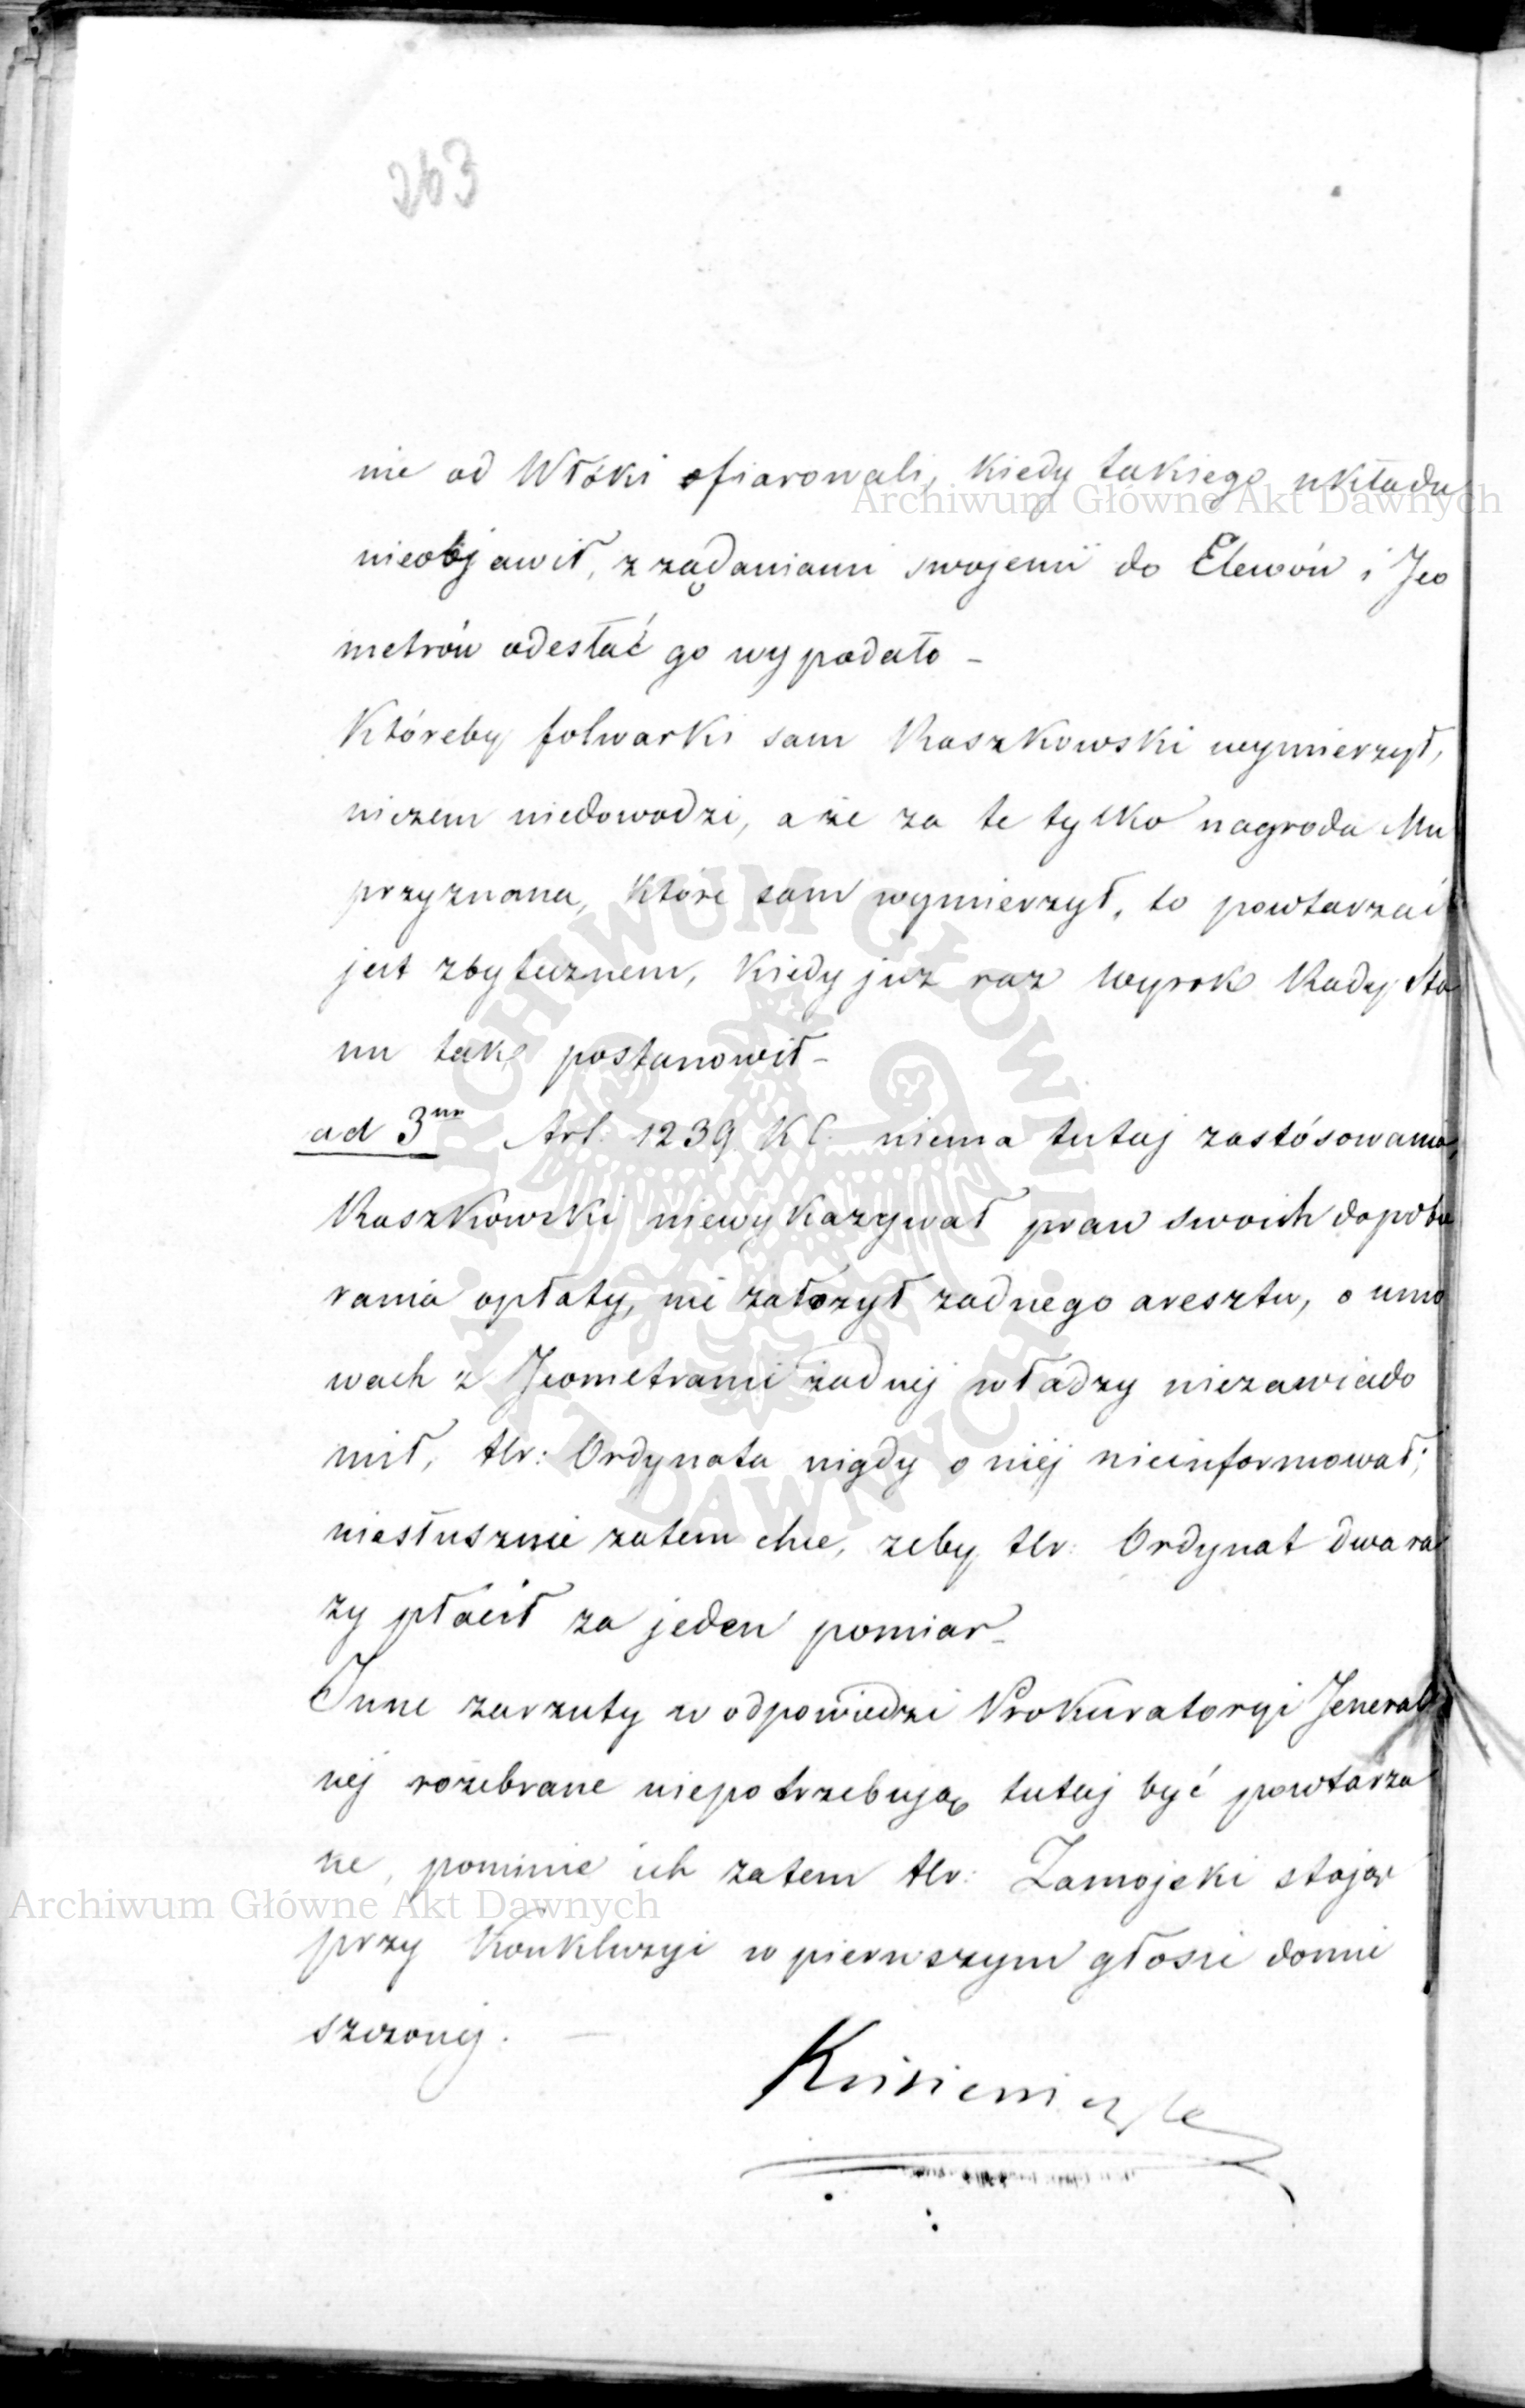 263
nie od Włóki ofiarowali, kiedy takiego układu
nieobjawił, z żądaniami swojemi do Elewów i Jeo
metrów odesłać go wypadało –
Któreby folwarki sam Raszkowski wymierzył,
niczem niedowodzi, a że za te tylko nagroda Mu
przyznana, które sam wymierzył, to powtarzać
jest zbytecznem, kiedy już raz Wyrok Rady Sta
nu tak postanowił –
ad 3um Art: 1239 K C. niema tutaj zastósowania,
Raszkowski niewykazywał praw swoich do pobie
rania opłaty, nie założył żadnego aresztu, o umo
wach z Jeometrami żadnej władzy niezawiado
mił, Hr: Ordynata nigdy o niej nieinformował;
niesłusznie zatem chce, żeby Hr: Ordynat dwa ra
zy płacił za jeden pomiar –
Inne zarzuty w odpowiedzi Prokuratoryi Jeneral
nej rozebrane niepotrzebują tutaj być powtarza
ne, pominie ich zatem Hr: Zamojski stojąc
przy Konkluzyi w pierwszym głosie domie
szczonej. –
Archiwum Główne Akt Dawnych
Archiwum Główne Akt Dawnych
ARCHIWUM GŁÓWNE AKT DAWNYCH